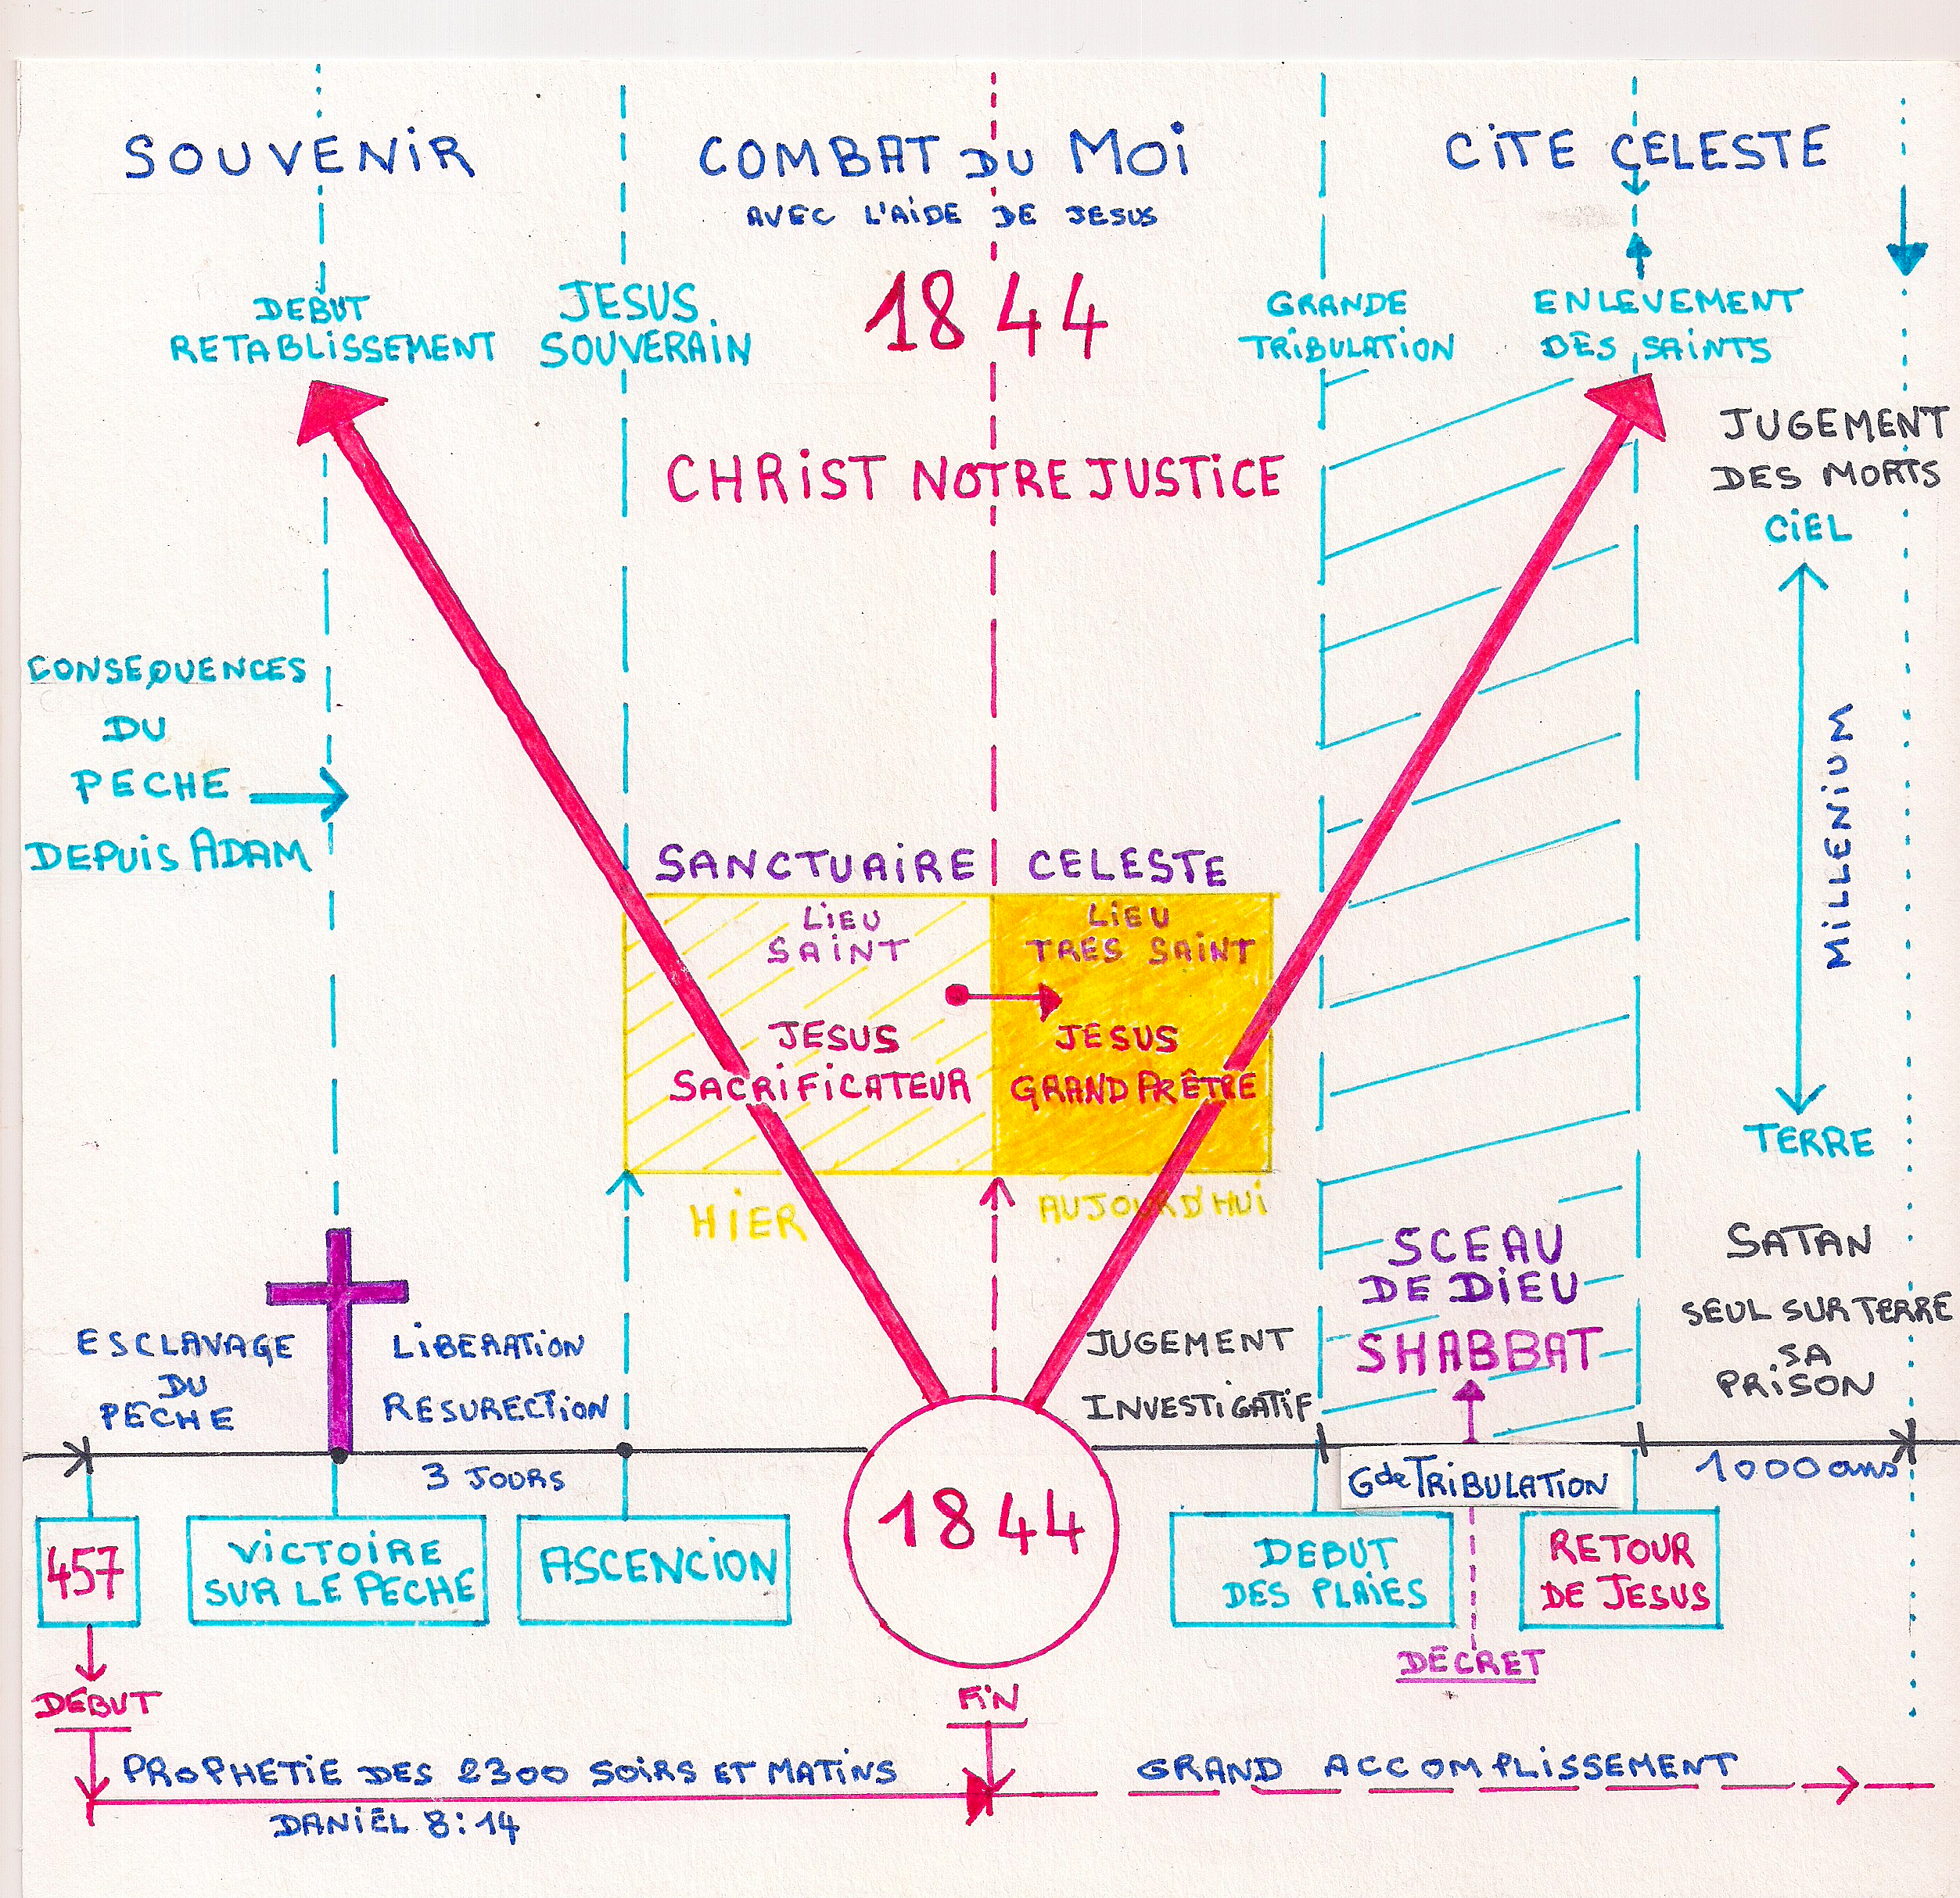 SOUVENiR
COMBAT DU MOi
AVEC L'AiDE DE JESUS
CiTE CELESTE
DEBUT
RETABLiSSEMENT
JESUS
SOUVERAiN
1844
GRANDE
TRiBULATiON
ENLEVEMENT
DES SAiNTS
CHRiST NOTRE JUSTiCE
JUGEMENT
DES MORTS
CiEL
MiLLENiUM
TERRE
CONSEQUENCES
DU
PECHE
DEPUiS ADAM
SANCTUAiRE CELESTE
LiEU
SAiNT
LiEU
TRES SAiNT
JESUS
SACRiFiCATEUR
JESUS
GRAND PRÊTRE
HiER
AUJOURD'HUi
ESCLAVAGE
DU
PECHE
LiBERATiON
RESURECTiON
JUGEMENT
iNVESTiGATiF
SCEAU
DE DiEU
SHABBAT
SATAN
SEUL SUR TERRE
SA
PRiSON
3 JOURS
Gde TRiBULATiON
1000 ans
457
ViCTOiRE
SUR LE PECHE
ASCENCiON
1844
DEBUT
DES PLAiES
RETOUR
DE JESUS
DECRET
DEBUT
FiN
PROPHETiE DES 2300 SOiRS ET MATiNS
DANiEL 8:14
GRAND ACCOMPLiSSEMENT